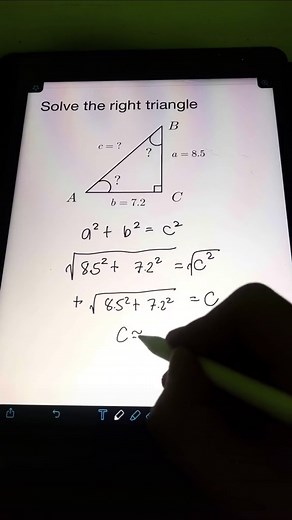 Solve the right triangle
B
c = ?
?
a = 8.5
?
A
b = 7.2
C
a² + b² = c²
√8.5² + 7.2² = √c²
+ √8.5² + 7.2² = c
C ≈
T